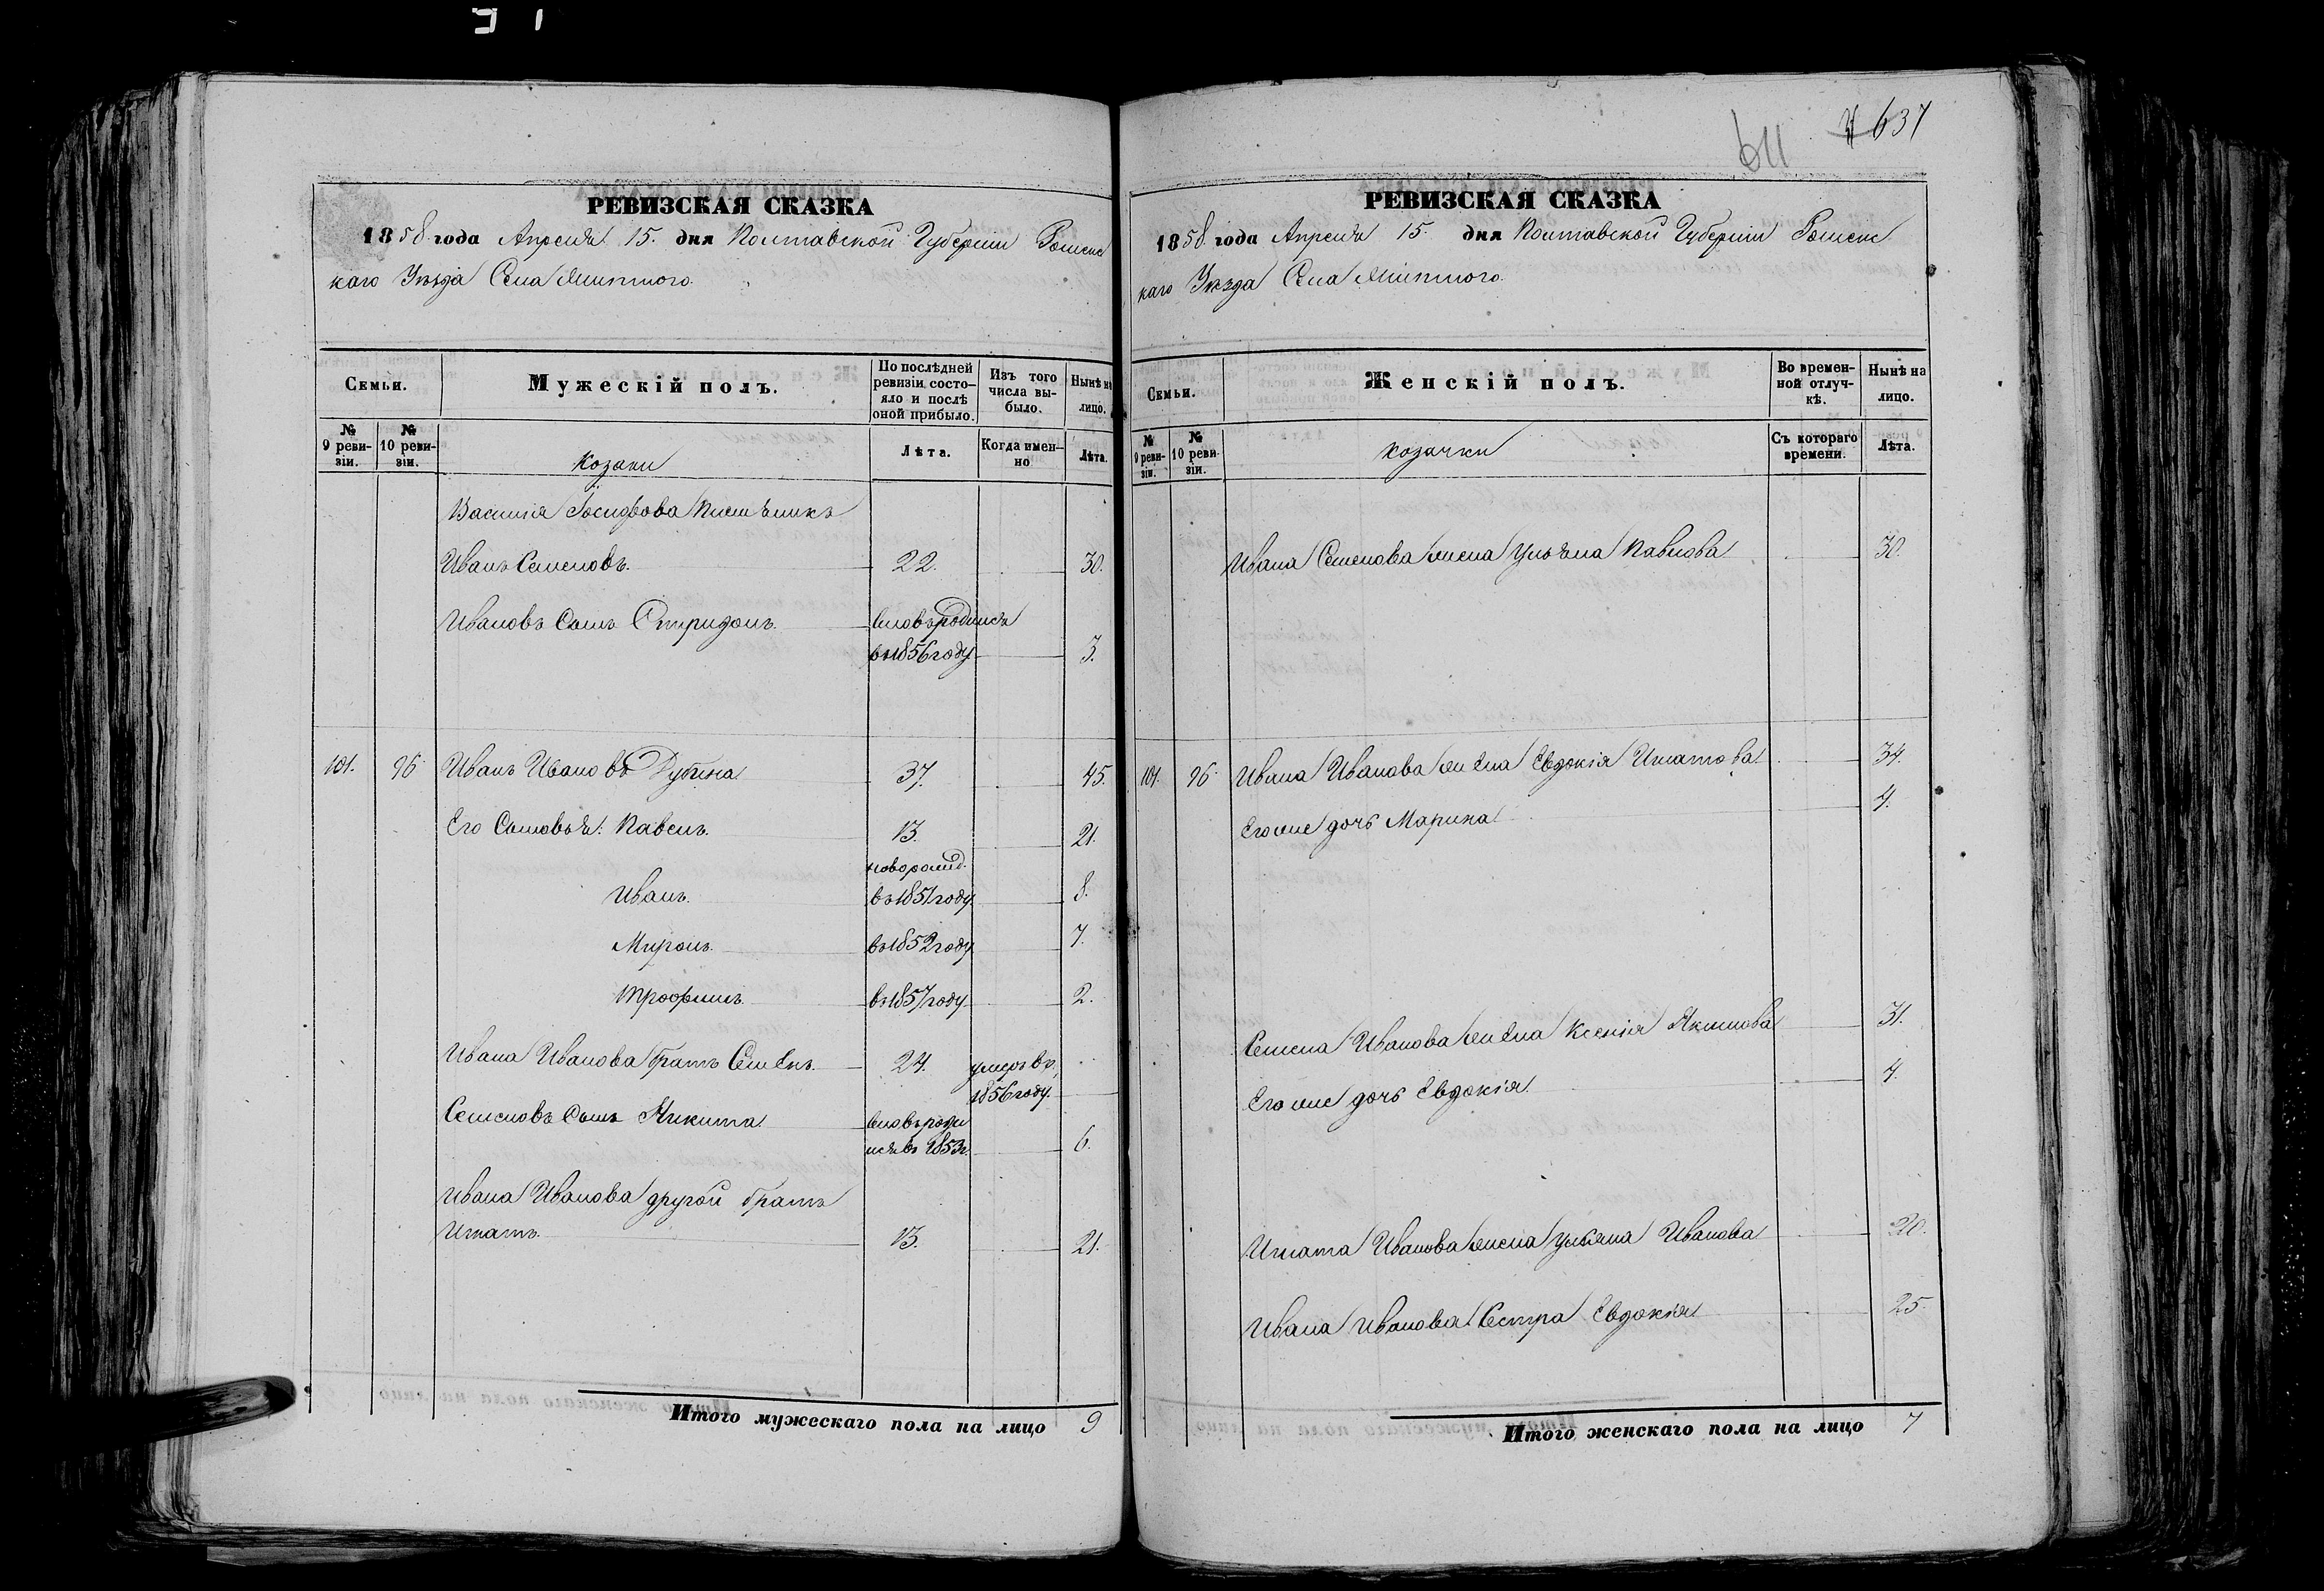 637
611
РЕВИЗСКАЯ СКАЗКА
1858 года Апреля 15. дня Полтавской Губерніи Роменс
каго Уезда Села
Семьи.
Мужескій полъ.
По послѣдней ревизіи состо-
яло и послѣ
оной прибыло.
Изъ того
числа вы-
было.
Нынѣ на
лицо.
№
9 реви-
зіи.
№
10 реви-
зіи.
козаки
Лѣта.
Когда имен-
но
Лѣта.
Василія Іосифова
Иванъ Семеновъ. 22. 30.
Ивановъ Сынъ Спиридонъ. вновь родился
въ 1856 году 3.
101. 96. Иванъ Ивановъ Дубина 37. 45.
Его Сыновья: Павелъ. 13. 21.
новорожд.
Иванъ. въ 1851 году 8.
Миронъ. въ 1852 году 7.
Трофимъ. въ 1857 году 2.
Ивана Иванова братъ Семенъ. 24. умеръ въ
1856 году.
Семеновъ Сынъ Никита вновь роди
лся въ 1853 г. 6.
Ивана Иванова другой братъ
Игнатъ. 13. 21.
Итого мужескаго пола на лицо 9
РЕВИЗСКАЯ СКАЗКА
1858 года Апреля 15. дня Полтавской Губерніи Роменс
каго Уезда Села
Семьи.
Женскій полъ.
Во времен-
ной отлуч-
кѣ.
Нынѣ на
лицо.
№
9 реви-
зіи.
№
10 реви-
зіи.
козачки
Съ котораго
времени.
Лѣта.
Ивана Семенова жена Ульяна Павлова 30.
101. 96. Ивана Иванова жена Евдокія Игнатова 34.
Его же дочь Марина 4.
Семена Иванова жена Ксенія Якимова 31.
Его же дочь Евдокія 4.
Игната Иванова жена Ульяна Иванова 20.
Ивана Иванова Сестра Евдокія 25.
Итого женскаго пола на лицо 7